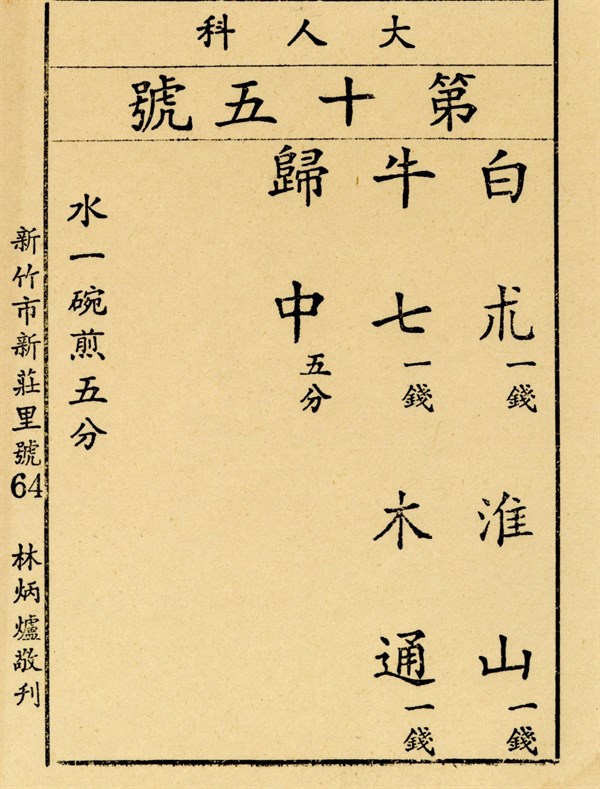 大人科
第十五號
白朮一錢 淮山一錢
牛七一錢 木通一錢
歸中五分
水一碗煎五分
新竹市新莊里號64 林炳爐敬刋